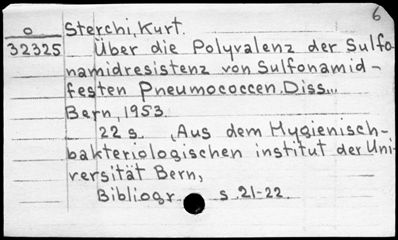 6
o Sterchi, Kurt.
32325 Über die Polyvalenz der Sulfo-
namidresistenz von Sulfonamid-
festen Pneumococcen. Diss...
Bern, 1953.
22 s. , Aus dem Hygienisch-
bakteriologischen institut der Uni-
versität Bern,
Bibliogr. s. 21-22.